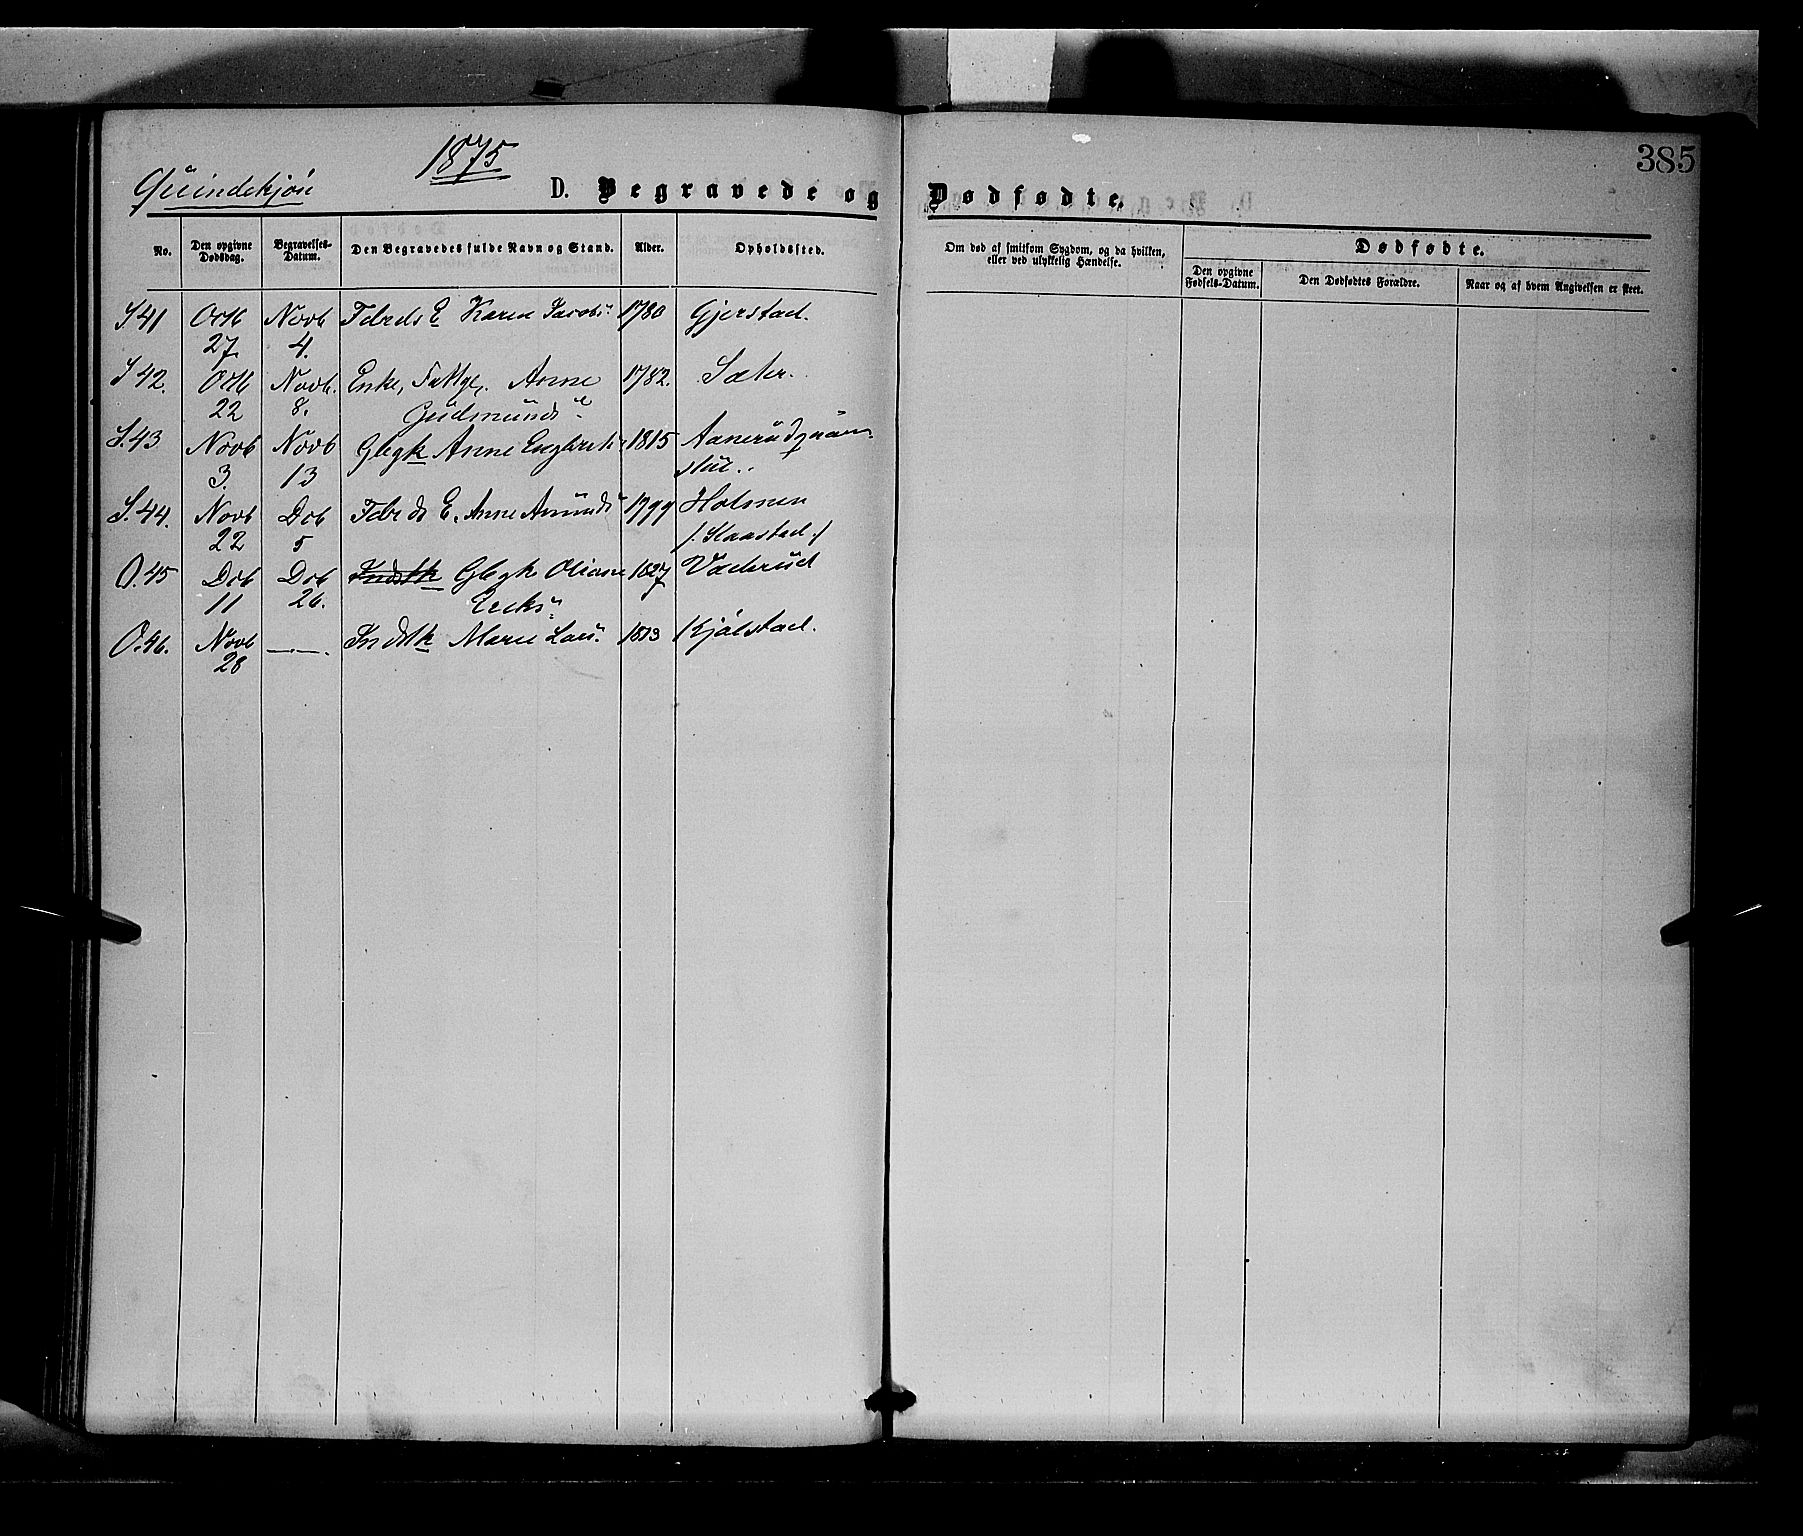 1875
385
Quindekjøn
D. Begravede og Dødfødte.
No. Den opgivne Dødsdag. Begravelses-Datum. Den Begravedes fulde Navn og Stand. Alder. Opholdssted. Om død af smitsom Sygdom, og da hvilken, eller ved ulykkelig Hændelse. Dødfødte.
Den opgivne Fødsels-Datum. Den Dødfødtes Forældre. Naar og af hvem Angivelsen er skeet.
S 41 Octb 27. Novb 4. Fdrds E Karen Jacobs. 1780 Gjerstad.
S 42. Octb 22 Novb. 8. Enke, Anne Gudmunds 1782. Sæter.
S. 43 Novb 3. Novb 13 Gbgk Anne Engbrets 1815
S. 44. Novb 22 Dcb 5 Fdrds E. Anne Amunds 1799 Holmen /: Kaastad :/
O. 45 Dcb 11 Dcb 26. Indstk Gbgk Oliane Ericks 1827
O. 46. Novb 28 — Indstk Marie Lars. 1813 Kjølstad.